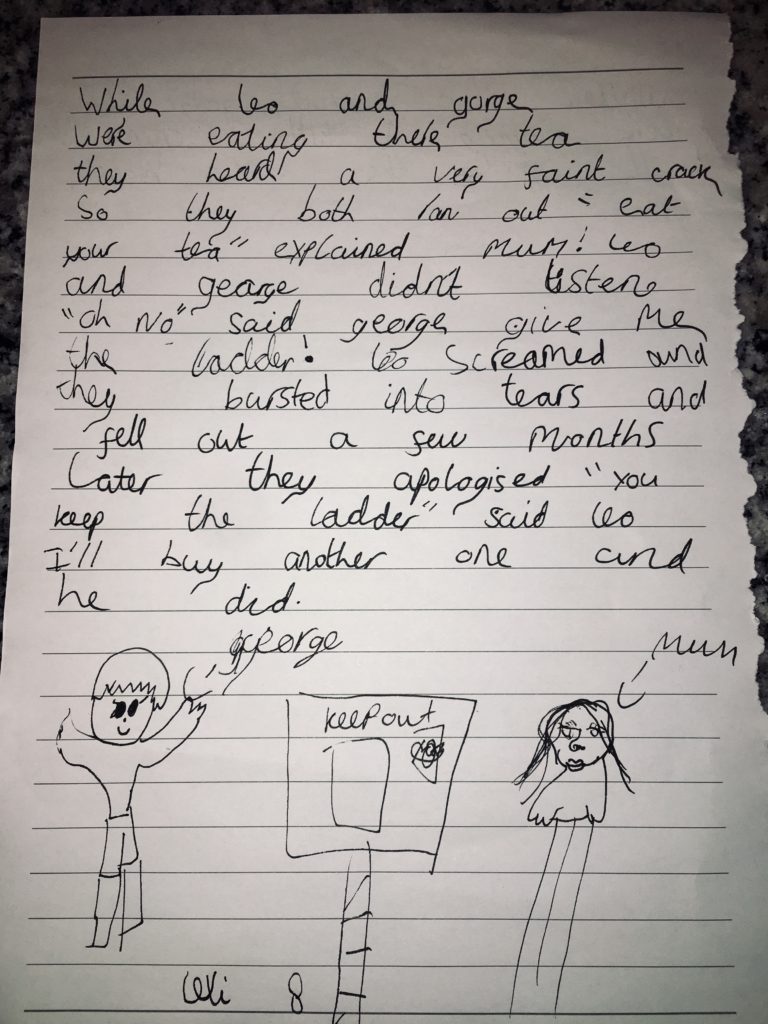 While Leo and gorge
were eating there tea
they heard a very faint crack
So they both ran out "eat
your tea" explained Mum! Leo
and george didn't listen
"oh No" said george give Me
the ladder! Leo screamed and
they bursted into tears and
fell out a few Months
Later they apologised "you
keep the ladder" said Leo
I'll buy another one and
he did.
george
Mum
keep out
8